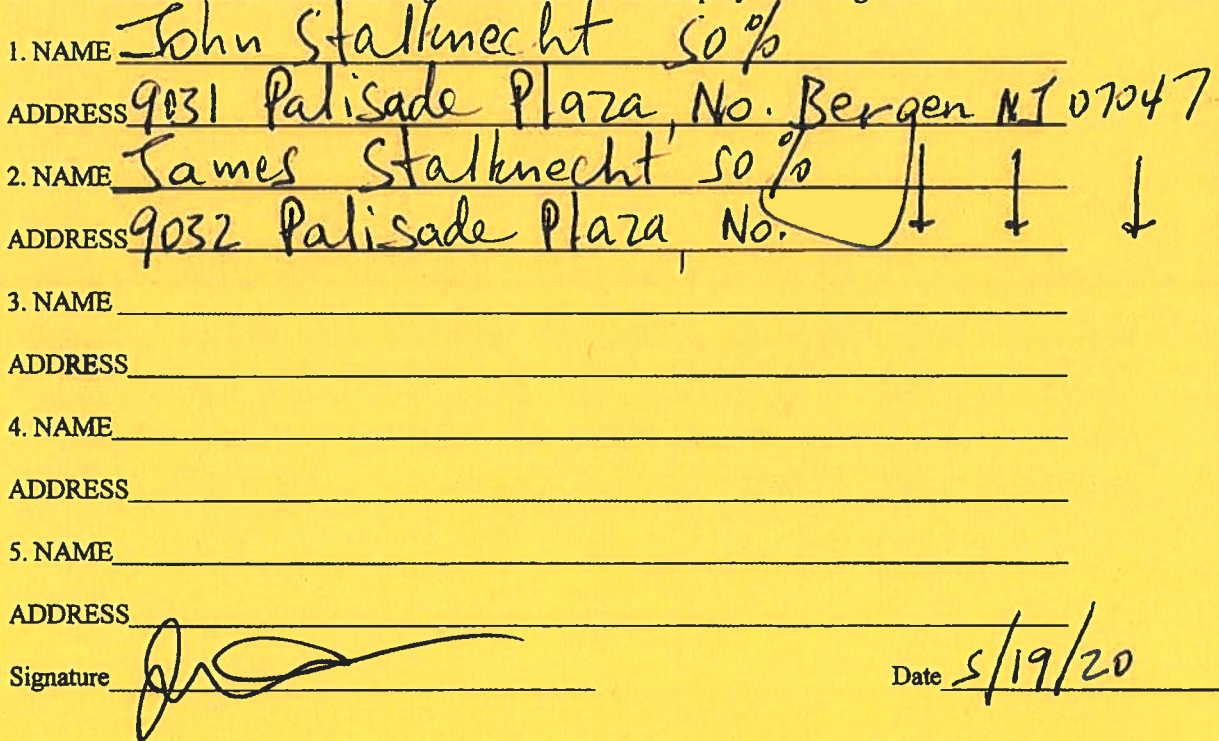 1. NAME John Stalknecht 50%
ADDRESS 9031 Palisade Plaza, No. Bergen NJ 07047
2. NAME James Stalknecht 50%
ADDRESS 9032 Palisade Plaza, No. ↓ ↓ ↓
3. NAME
ADDRESS
4. NAME
ADDRESS
5. NAME
ADDRESS
Signature
Date 5/19/20